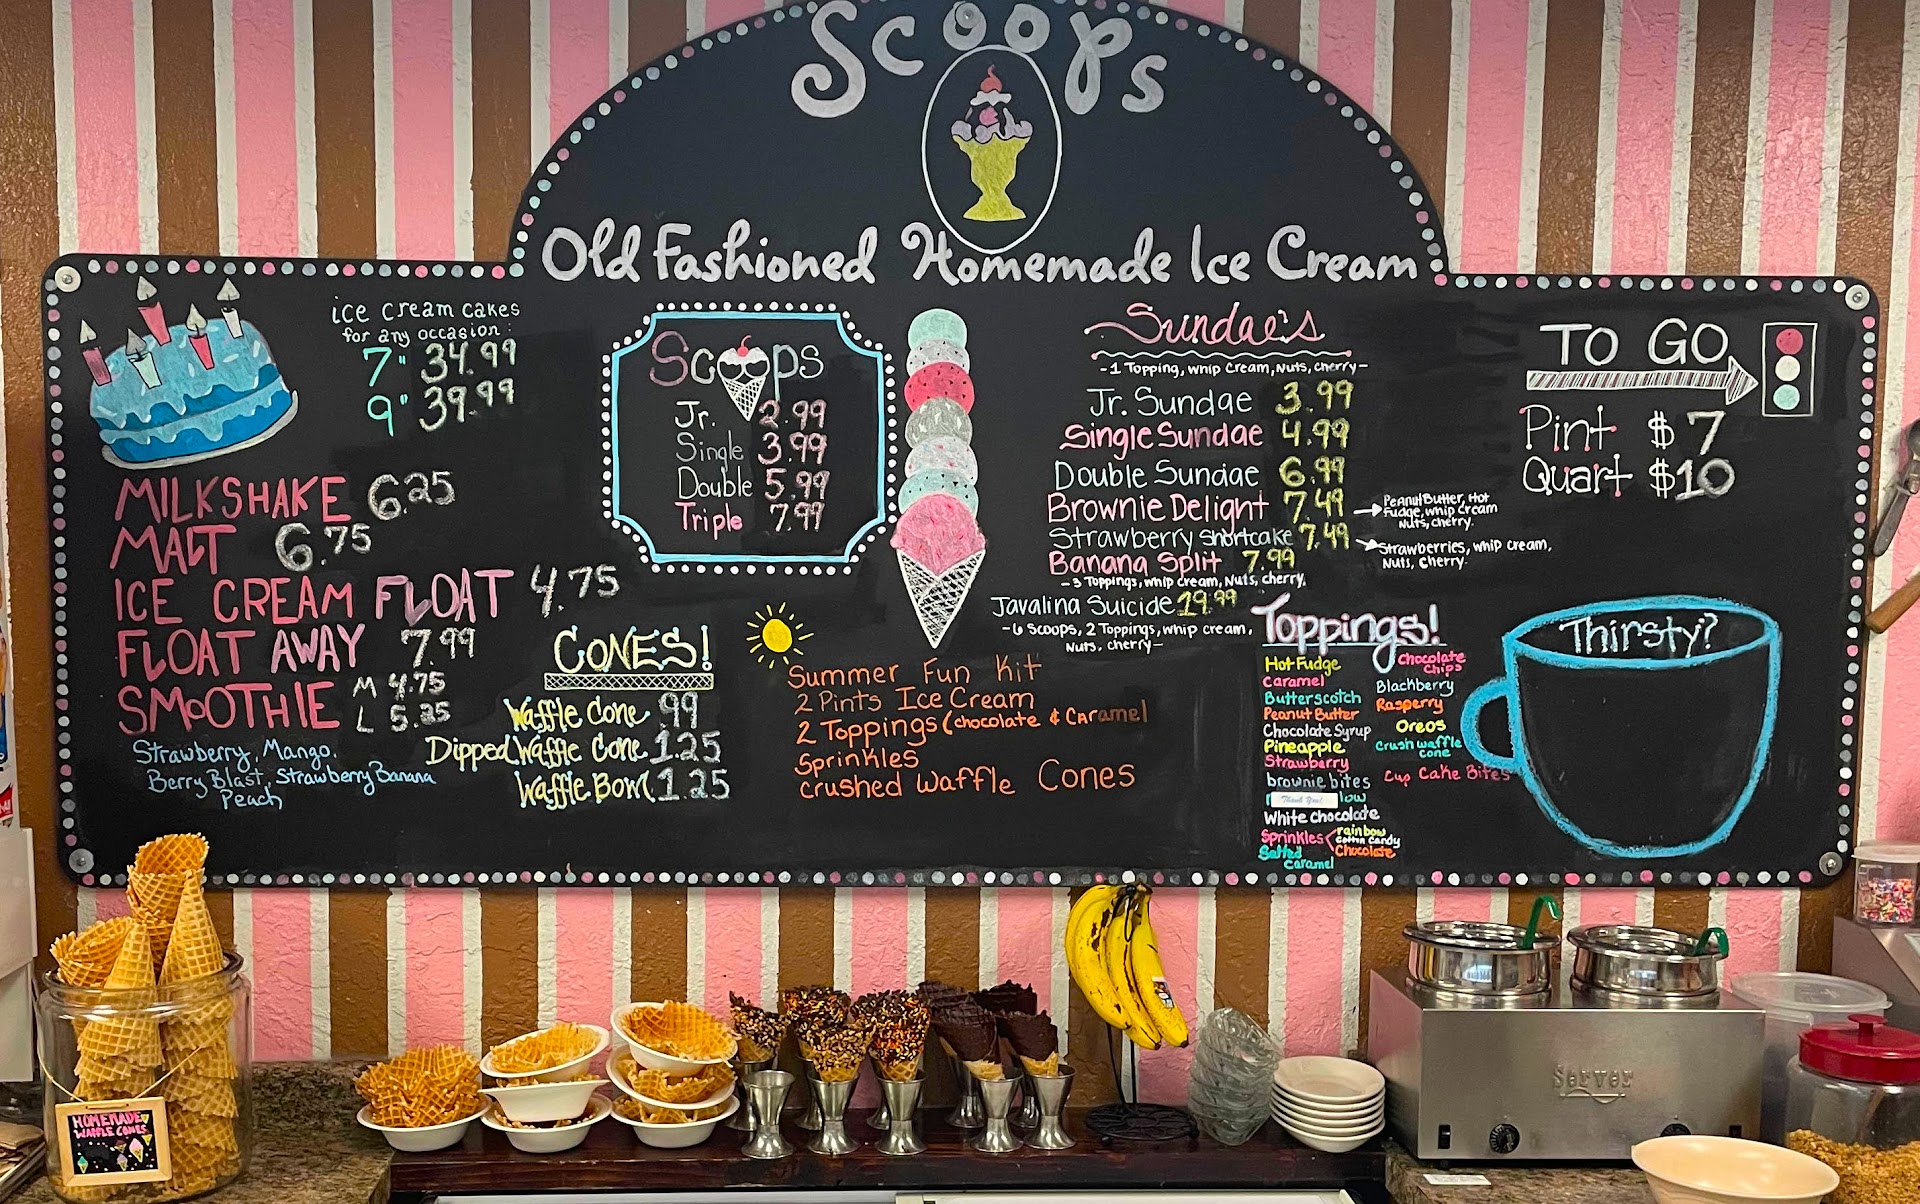 Scoops
Old Fashioned Homemade Ice Cream
ice cream cakes
for any occasion:
7" 34.99
9" 39.99
MILKSHAKE 6.25
MALT 6.75
ICE CREAM FLOAT 4.75
FLOAT AWAY 7.99
SMOOTHIE M 4.75
L 5.25
Strawberry, Mango,
Berry Blast, Strawberry Banana
Peach
CONES!
Waffle Cone 99
Dipped Waffle Cone 1.25
Waffle Bowl 1.25
Scoops
Jr. 2.99
Single 3.99
Double 5.99
Triple 7.99
Summer Fun Kit
2 Pints Ice Cream
2 Toppings (chocolate & caramel
Sprinkles
crushed Waffle Cones
Sundae's
-1 Topping, whip cream, Nuts, cherry-
Jr. Sundae 3.99
Single Sundae 4.99
Double Sundae 6.99
Brownie Delight 7.49
Peanut Butter, Hot
Fudge, whip cream
Nuts, cherry.
Strawberry shortcake 7.49
Strawberries, whip cream,
Nuts, cherry.
Banana Split 7.99
-3 Toppings, whip cream, Nuts, cherry,
Javalina Suicide 19.99
-6 Scoops, 2 Toppings, whip cream,
Nuts, cherry-
Toppings!
Hot Fudge
Caramel
Butterscotch
Peanut Butter
Chocolate Syrup
Pineapple
Strawberry
brownie bites
Thank You!
low
White chocolate
Sprinkles rainbow
cotton candy
Chocolate
Salted
Caramel
Chocolate
Chips
Blackberry
Rasperry
Oreos
Crush waffle
cone
Cup Cake Bites
TO GO
Pint $7
Quart $10
Thirsty?
HOMEMADE
WAFFLE CONES
Server